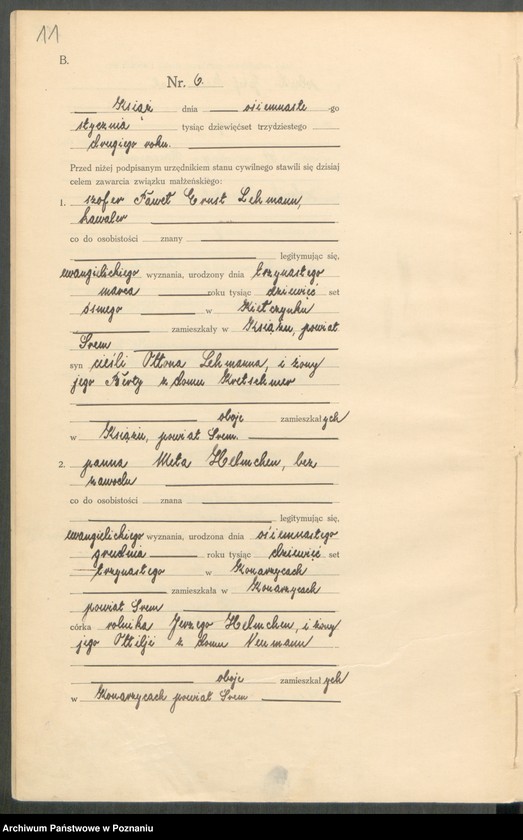 11
B.
Nr. 6.
Książ dnia ośiemnaste -go
stycznia tysiąc dziewięćset trzydziestego
drugiego roku.
Przed niżej podpisanym urzędnikiem stanu cywilnego stawili się dzisiaj
celem zawarcia związku małżeńskiego:
1. szofer Paweł Ernst Lehmann,
kawaler
co do osobistości znany
legitymując się,
ewangielickiego wyznania, urodzony dnia trzynastego
marca roku tysiąc dziewięć set
ósmego w Kiełczynku
zamieszkały w Książu, powiat
Śrem
syn cieśli Ottona Lehmanna, i żony
jego Berty z domu Kretschmer
oboje zamieszkał ych
w Książu, powiat Śrem.
2. panna Meta Helmchen, bez
zawodu
co do osobistości znana
legitymując się,
ewangielickiego wyznania, urodzona dnia ośiemnastego
grudnia roku tysiąc dziewięć set
trzynastego w Konarzycach
zamieszkała w Konarzycach
powiat Śrem
córka rolnika Jerzego Helmchen, i żony
jego Ottilji z domu Neumann
oboje zamieszkał ych
w Konarzycach powiat Śrem
Archiwum Państwowe w Poznaniu